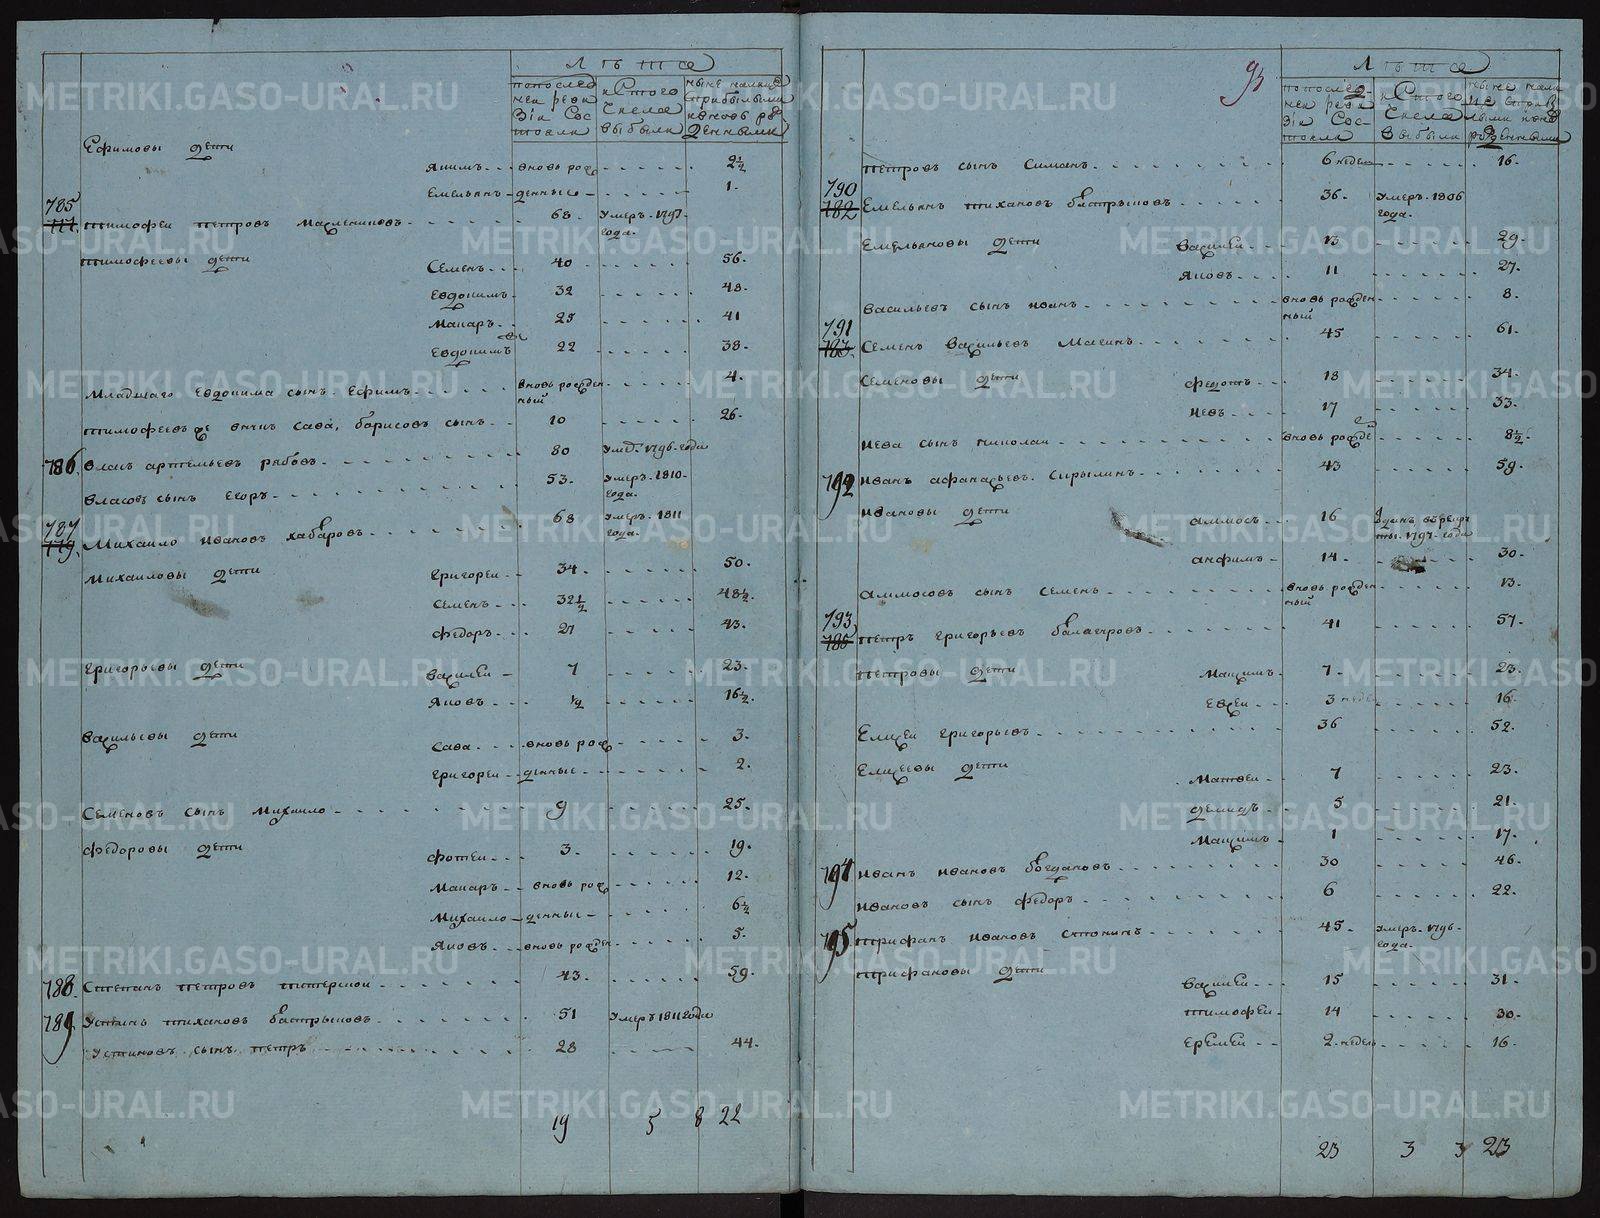 Лѣта
попослед
ней реви
зіи Сос
тояли
исъ того
числа
выбыли
ныне налицо
съ прибылыми
и вновь ро
жденными
Ефимовы дети
Якимъ вновь рож 2½
Емельянъ денные 1.
785
Тимофеи Петровъ Масленниковъ 68 Умеръ 1797
года.
Тимофеевы дети
Семенъ 40 56.
Евдокимъ 32 48.
Макаръ 25 41
Евдокимъ 22 38.
Младшаго Евдокима сынъ Ефимъ вновь рожден 4.
ный
Тимофеевъ же внукъ Сава, борисовъ сынъ 10 26.
786. Власъ артемьевъ рябовъ 80 Умер. 1796 года
Власовъ сынъ Егоръ 53. Умеръ 1810
года.
787
779. Михаило Ивановъ хабаровъ 68 Умеръ 1811
года.
Михаиловы дети
Григореи 34 50.
Семенъ 32½ 48½.
Федоръ 27 43.
Григорьевы дети
Василеи 7 23.
Яковъ ½ 16½.
Васильевы дети
Сава вновь рож 3.
Григореи денные 2.
Семеновъ сынъ Михаило 9 25.
Федоровы дети
Фотеи 3. 19.
Макаръ вновь рож 12.
Михаило денные 6½
Яковъ вновь рожден 5.
788. Степанъ Петровъ питерскои 43. 59.
789 Устинъ Тихановъ бастрыковъ 51 Умеръ 1811 года
Устиновъ сынъ Петръ 28 44.
19 5 8 22
93
Лѣта
попослед
ней реви
зіи Сос
тояли
исъ того
числа
выбыли
ныне нали
це съ приб
ылыми и вно
рожденными
Петровъ сынъ Симанъ 6 недель 16.
790
782 Емельянъ Тихановъ бастрыковъ 36. Умеръ 1806
года.
Емельяновы дети
Василеи 13 29.
Яковъ 11 27.
Васильевъ сынъ Иванъ вновь рожден 8.
ный
791
783. Семенъ Васильевъ Масинъ 45 61.
Семеновы дети
Федотъ 18 34.
Иевъ 17 33.
Иева сынъ Николаи вновь рожде 8½.
792 Иванъ афанасьевъ Сырылинъ 43 59.
Ивановы дети
Аммосъ 16
1797 года
анфимъ 14. 30.
Аммосовъ сынъ Семенъ вновь рожден 13.
ный
793
785 Петръ Григорьевъ балагуровъ 41 57.
Петровы дети
Максимъ 7 23.
Евсеи 3 неде 16.
Елисеи Григорьевъ 36 52.
Елисеевы дети
Матвеи 7 23.
Демидъ 5 21.
Максимъ 1 17.
794 Иванъ Ивановъ богдановъ 30 46.
Ивановъ сынъ Федоръ 6 22.
795 Трифанъ Ивановъ 45. Умеръ 1796
года.
Трифановы дети
Василеи 15 31.
Тимофеи 14 30.
Еремеи 2 недель 16.
23 3 3 23
METRIKI.GASO-URAL.RU